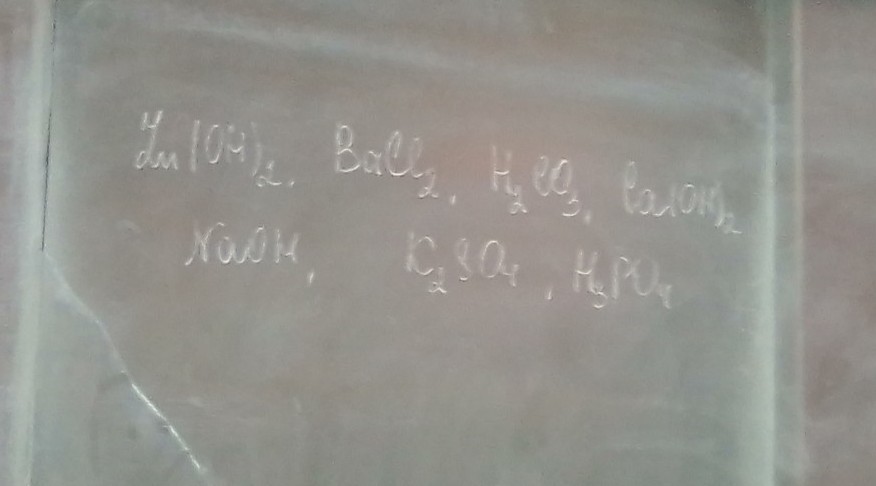 Zn(OH)2, BaCl2, H2CO3, Ca(OH)2
NaOH, K2SO4, H3PO4